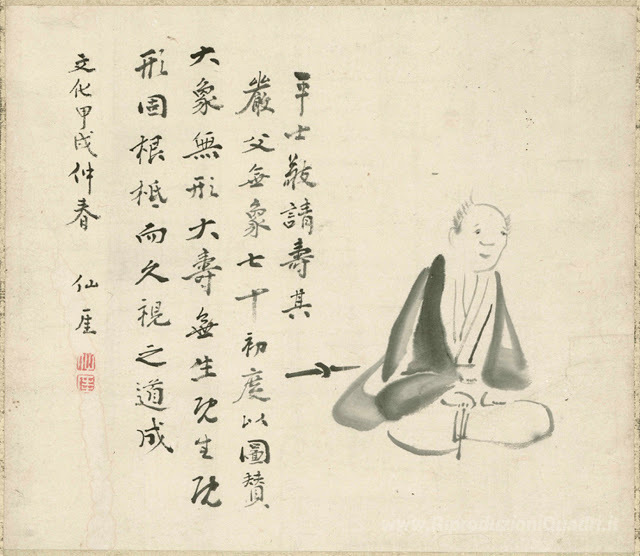 平士敬請壽其
嚴父無象七十初度以圖贊
大象無形大壽無生既生既
形固根柢而久視之道成
文化甲戌仲春 仙厓
仙厓
www.RiproduzioniQuadri.it